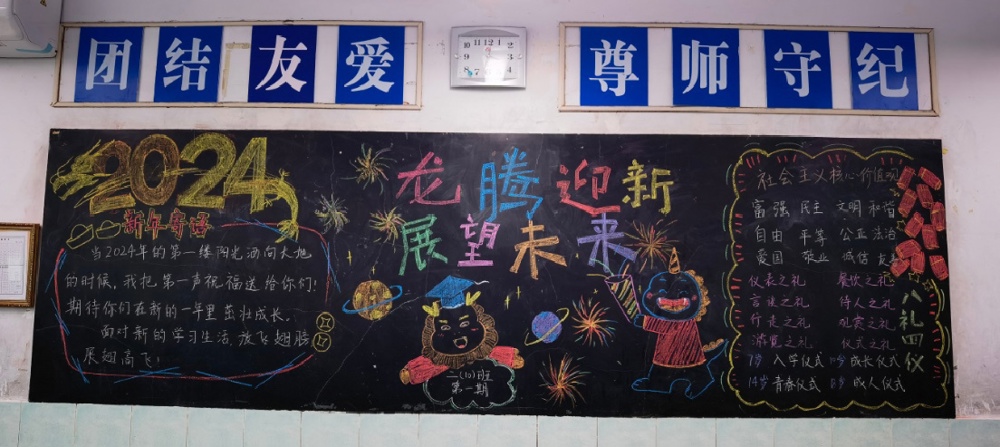 团结友爱
10 11 12 1 2
9 3
8 7
尊师守纪
2024
新年寄语
当2024年的第一缕阳光洒向大地
的时候,我把第一声祝福送给你们!
期待你们在新的一年里茁壮成长。
面对新的学习生活,放飞翅膀
展翅高飞!
龙腾迎新
展望未来
二(10)班
第一期
社会主义核心价值观
富强 民主 文明 和谐
自由 平等 公正 法治
爱国 敬业 诚信 友善
八礼四仪
仪表之礼 餐饮之礼
言谈之礼 待人之礼
行走之礼 观赏之礼
游览之礼 仪式之礼
7岁 入学仪式 成长仪式
14岁 青春仪式 成人仪式